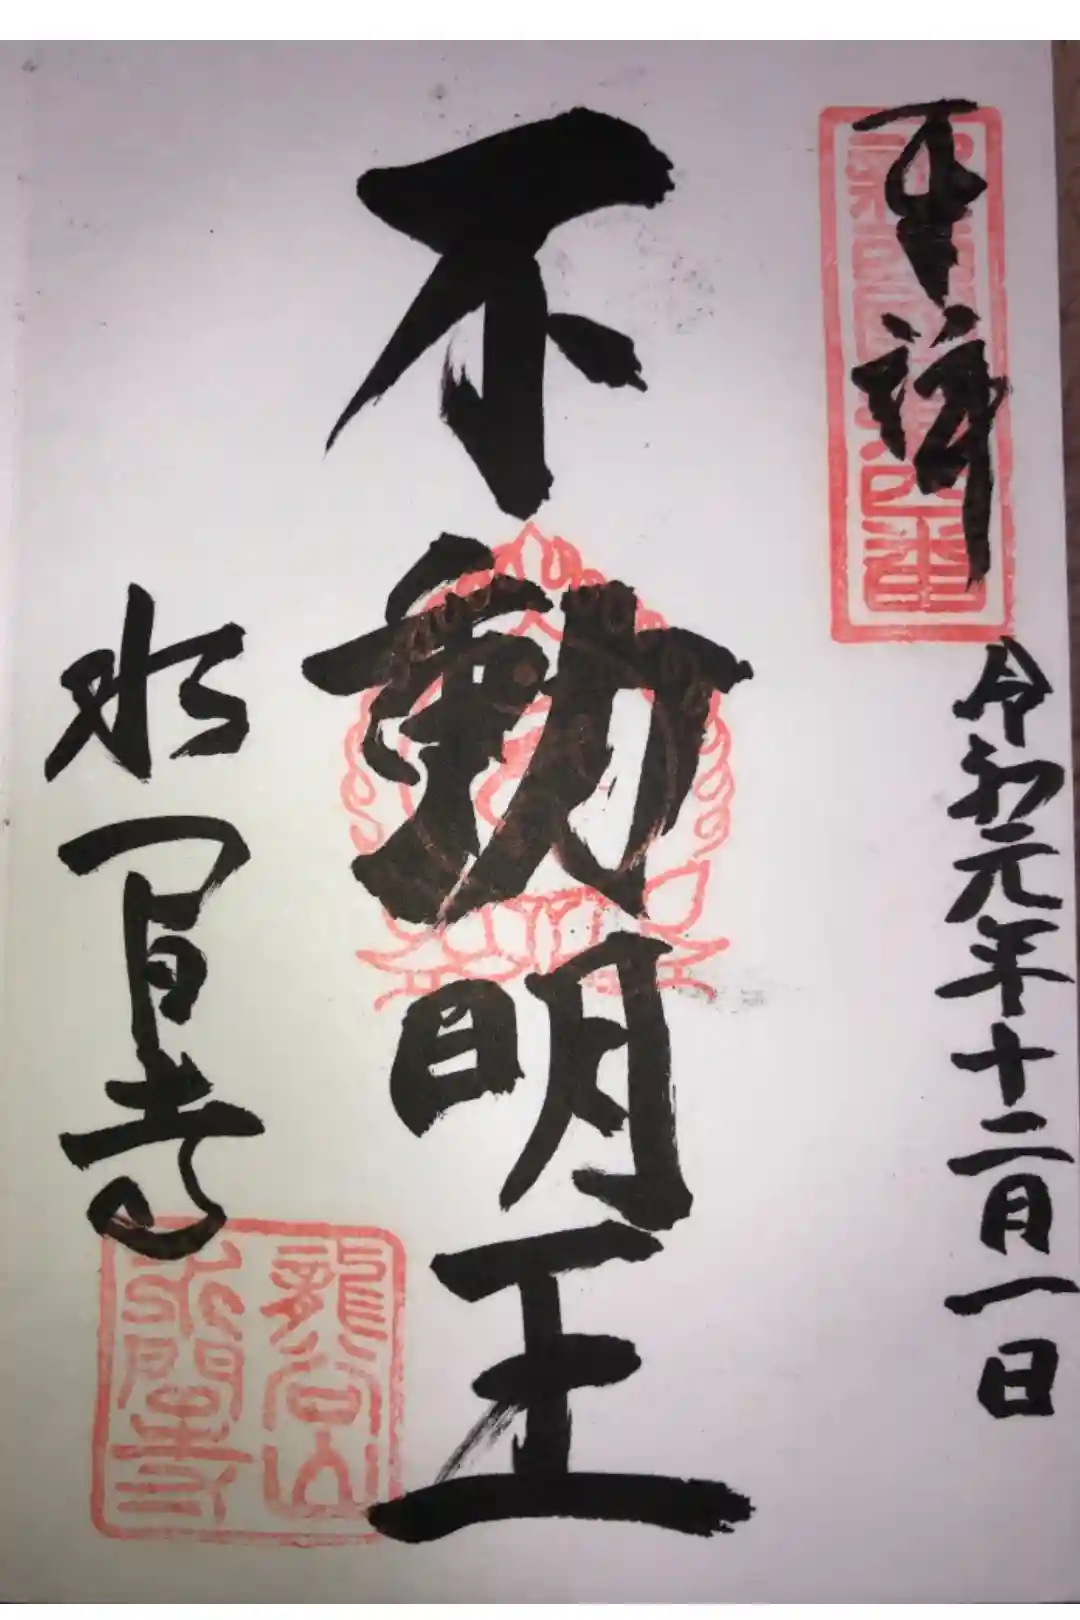 奉拝
令和元年十二月一日
不動明王
水間寺
龍谷山
水間寺